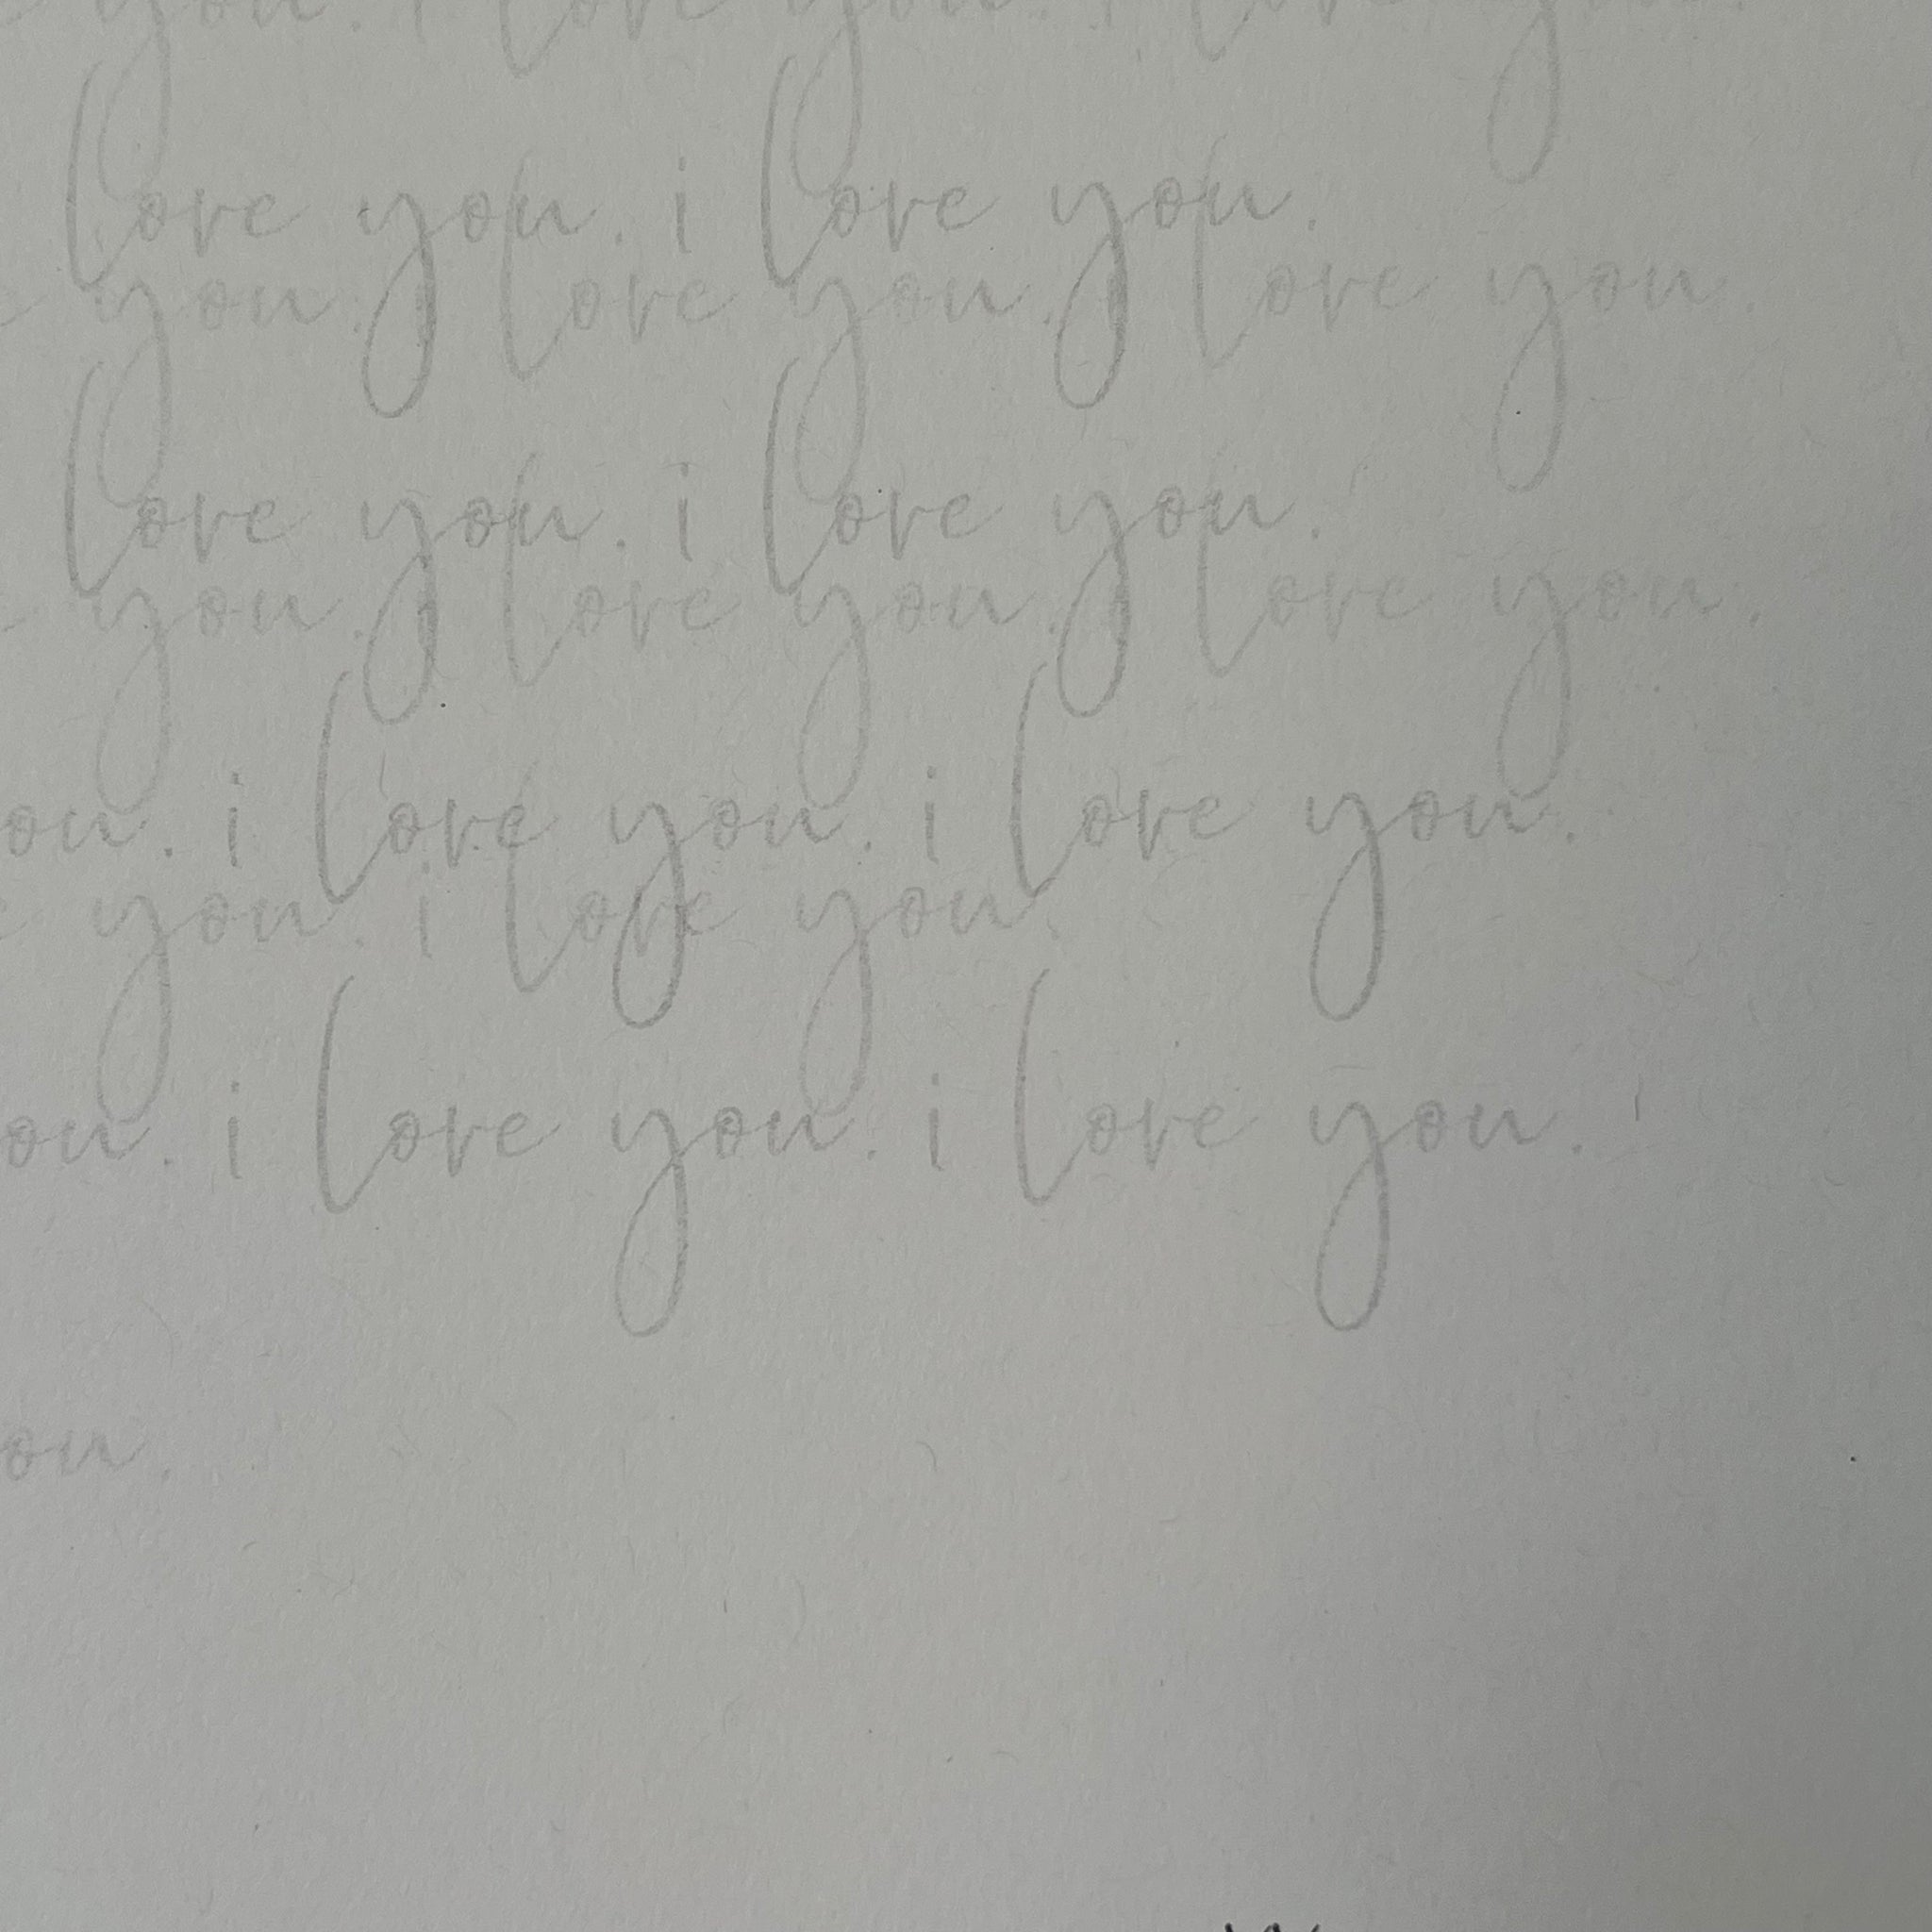 you. i love you. i love you.
love you. i love you.
you. love you. love you.
love you. i love you.
you. love you. love you.
ou. i love you. i love you.
e you. i love you.
ou. i love you. i love you.
ou.